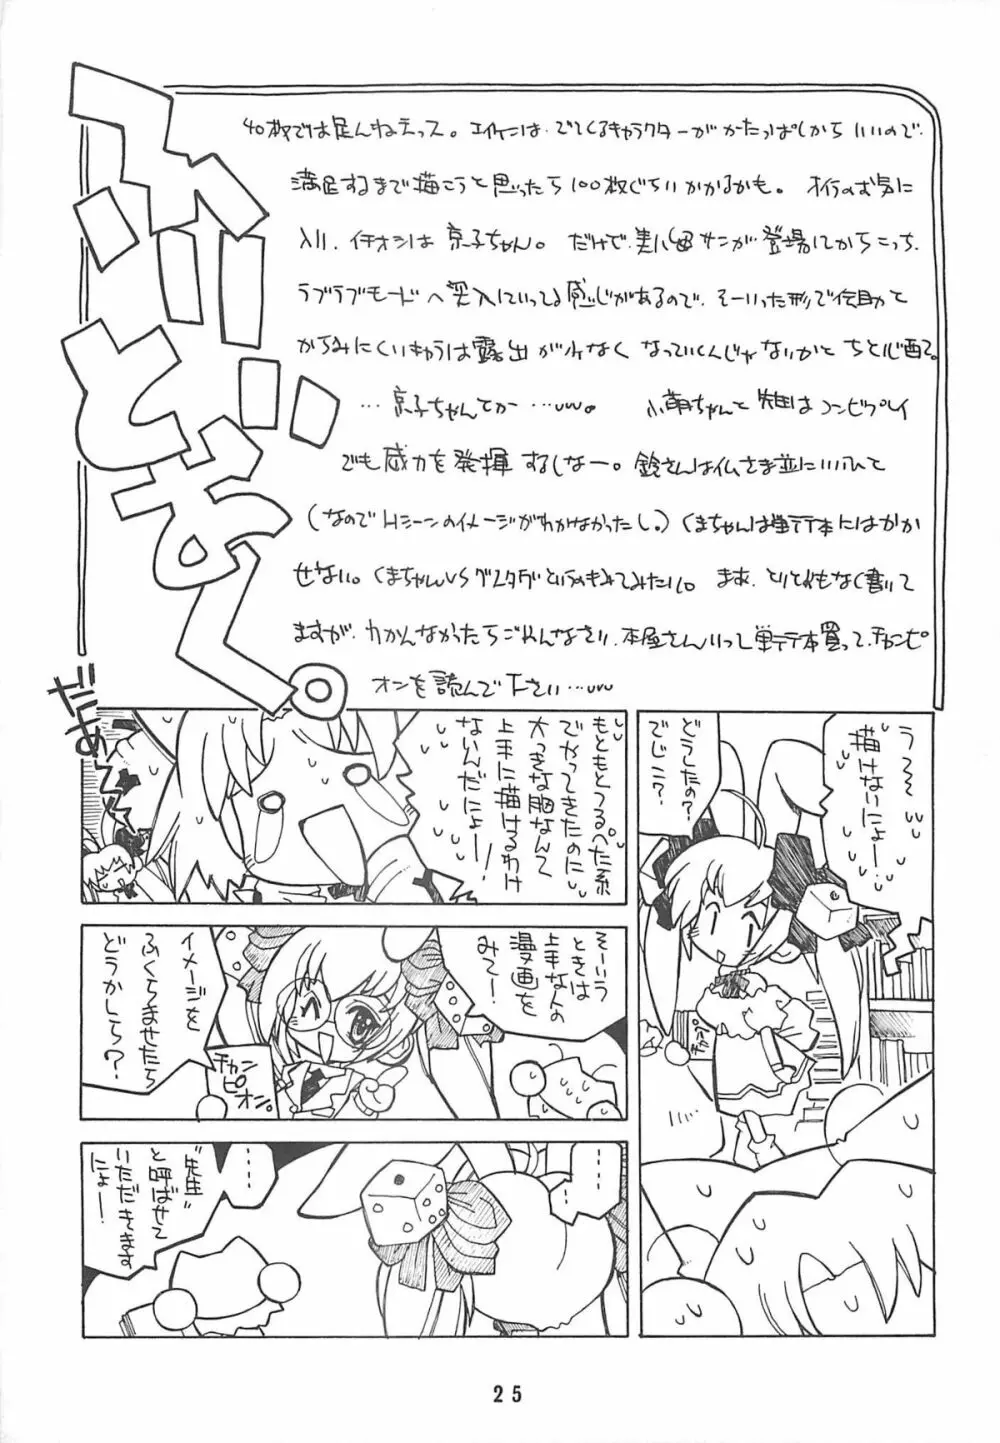 あとがき。
40枚では足んねえっス。エイケンは、でてくるキャラクターがかたっぱしからいいので、
満足するまで描こうと思ったら100枚ぐらいかかるかも。
入り、イチオシは京子ちゃん。だけど、美川母サンが登場してからこっち、
ラブラブモードへ突入していってる感じがあるので、そーいった形で伝助と
からみにくいキャラは露出が少なくなっていくんじゃないかとちと心配で。
…京子ちゃんとか……。
でも威力を発揮するしなー。鈴さんは
(なのでHシーンのイメージがわかなかったし。)くまちゃんは単行本にはかか
せない。くまちゃんVS
ますが、わかんなかったらごめんなさい、本屋さんいって単行本買って、チャンピ
オンを読んで下さい…
うう〜〜
描けないにょー
どうしたの?
でじこ?
チャンプ
だぁぁ
もともとつるぺた系
でやってきたのに
大っきな胸なんて
上手に描けるわけ
ないんだにょー!
そーいう
ときは
上手な人の
漫画を
みて!
イメージを
ふくらませたら
どうかしら?
チャン
ピオン。
……
……
"先生"
と呼ばせて
いただきます
にょー!
25